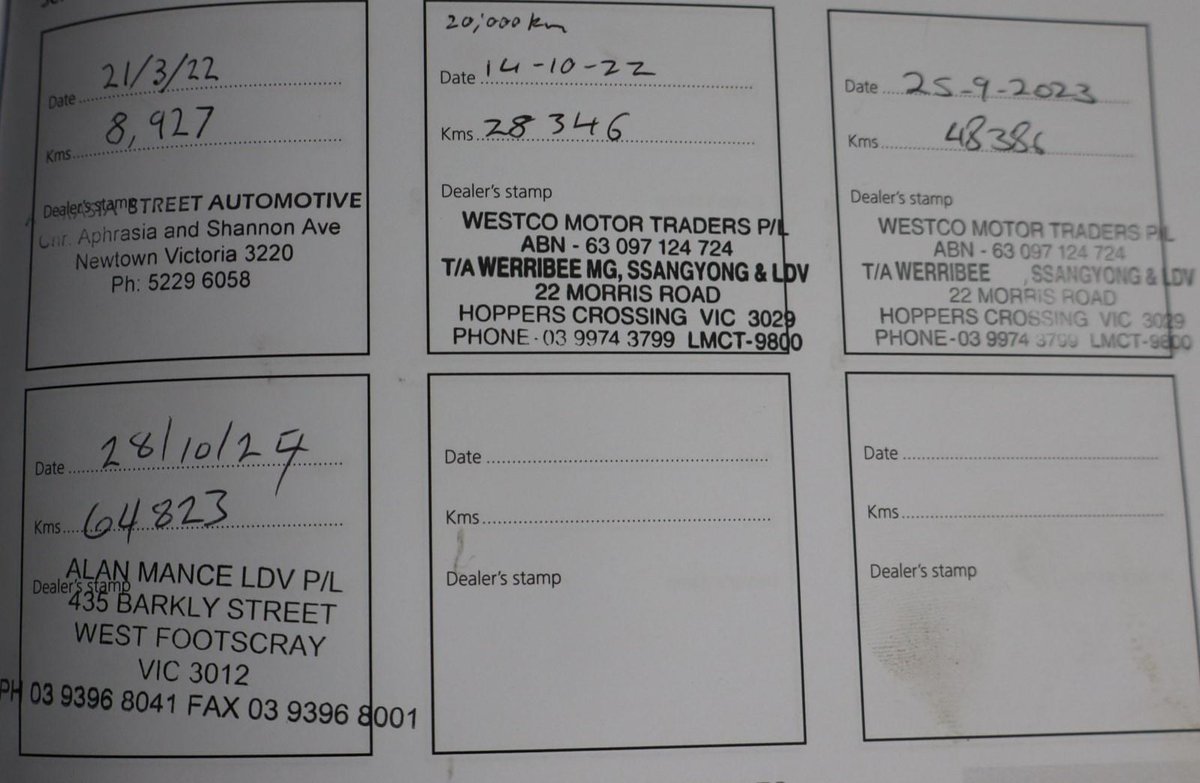 21/3/22
Date
8,927
Kms
Dealer's stamp STREET AUTOMOTIVE
Cnr. Aphrasia and Shannon Ave
Newtown Victoria 3220
Ph: 5229 6058
20,000 km
Date 14-10-22
Kms 28346
Dealer's stamp
WESTCO MOTOR TRADERS P/L
ABN - 63 097 124 724
T/A WERRIBEE MG, SSANGYONG & LDV
22 MORRIS ROAD
HOPPERS CROSSING VIC 3029
PHONE - 03 9974 3799 LMCT-9800
Date 25-9-2023
Kms 48386
Dealer's stamp
WESTCO MOTOR TRADERS P/L
ABN - 63 097 124 724
T/A WERRIBEE , SSANGYONG & LDV
22 MORRIS ROAD
HOPPERS CROSSING VIC 3029
PHONE - 03 9974 3799 LMCT-9800
Date 28/10/24
Kms 64823
Dealer's stamp
ALAN MANCE LDV P/L
435 BARKLY STREET
WEST FOOTSCRAY
VIC 3012
PH 03 9396 8041 FAX 03 9396 8001
Date
Kms
Dealer's stamp
Date
Kms
Dealer's stamp